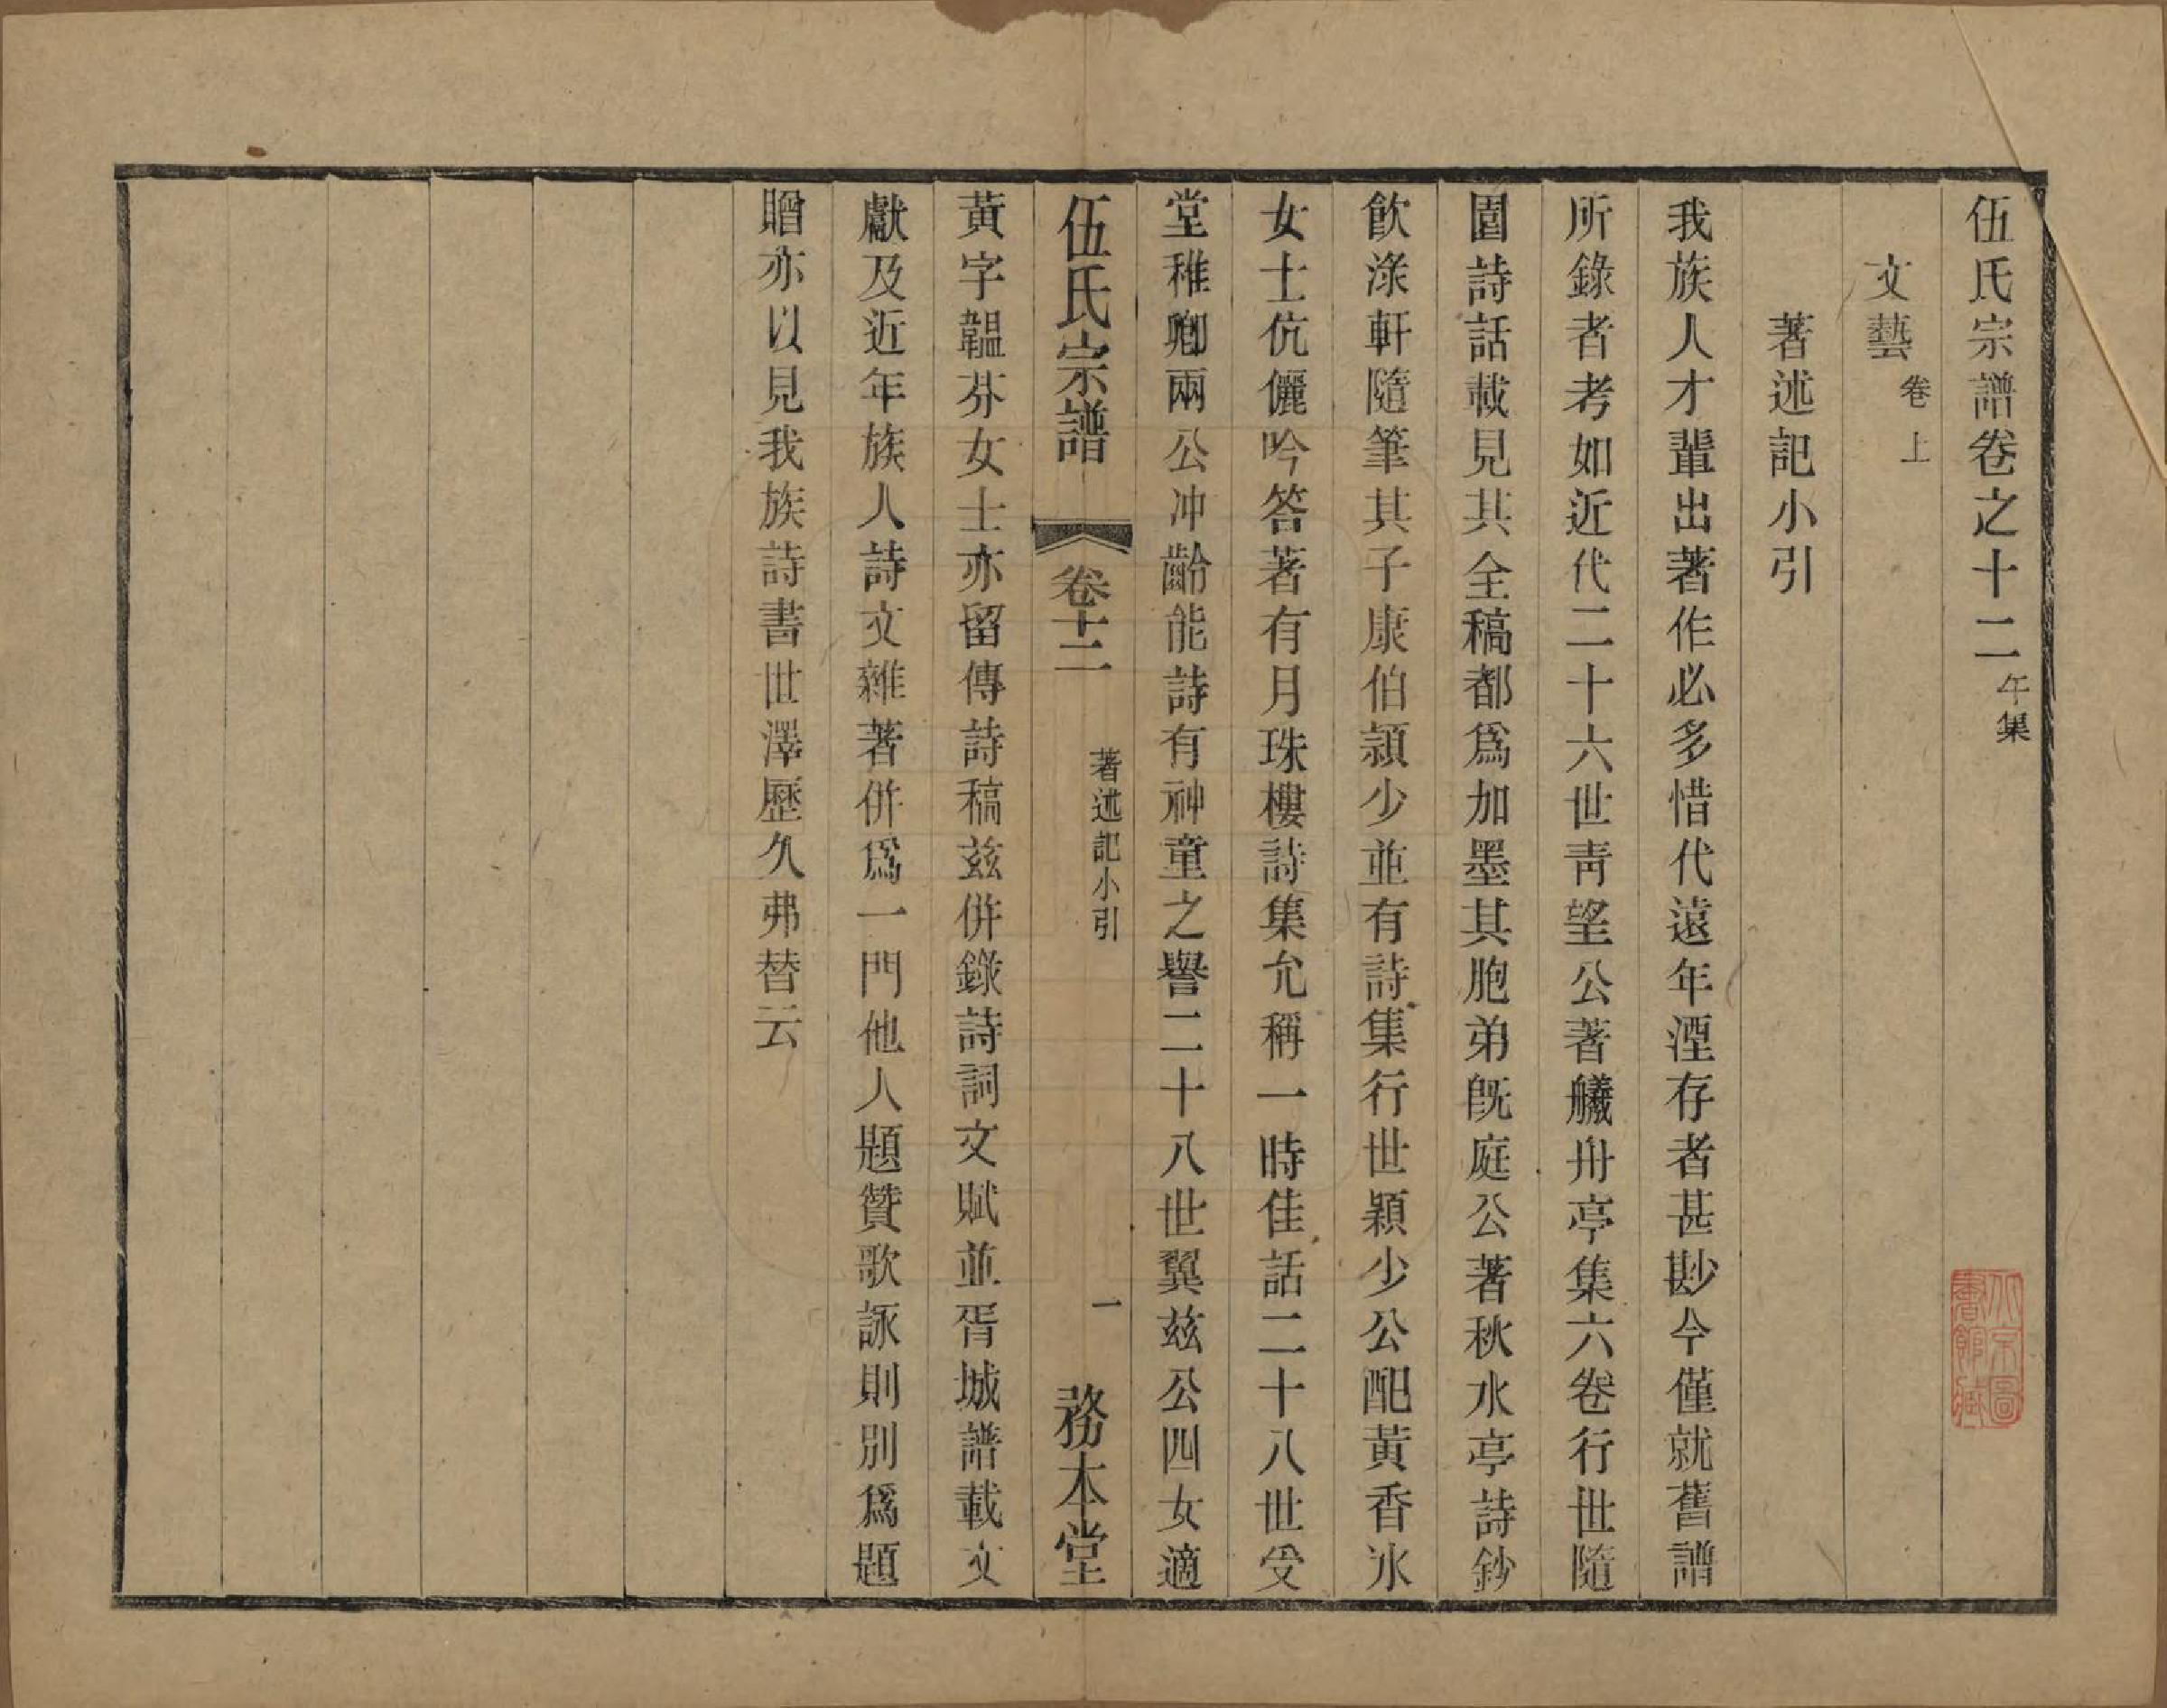 伍氏宗譜卷之十二午集
文藝卷上
著述記小引
我族人才輩出著作必多惜代遠年湮存者甚尠今僅就舊譜
所錄者考如近代二十六世靑望公著艤舟亭集六卷行世隨
園詩話載見其全稿都爲加墨其胞弟旣庭公著秋水亭詩鈔
飮淥軒隨筆其子康伯頴少並有詩集行世穎少公配黃香冰
女士伉儷吟答著有月珠樓詩集允稱一時佳話二十八世受
堂稚卿兩公冲齡能詩有神童之譽二十八世翼兹公四女適
伍氏宗譜 卷十二 著述記小引 一 務本堂
黃字韞芬女士亦留傳詩稿兹併錄詩詞文賦並胥城譜載文
獻及近年族人詩文雜著併爲一門他人題贊歌詠則別爲題
贈亦以見我族詩書世澤歷久弗替云
北京圖書館藏